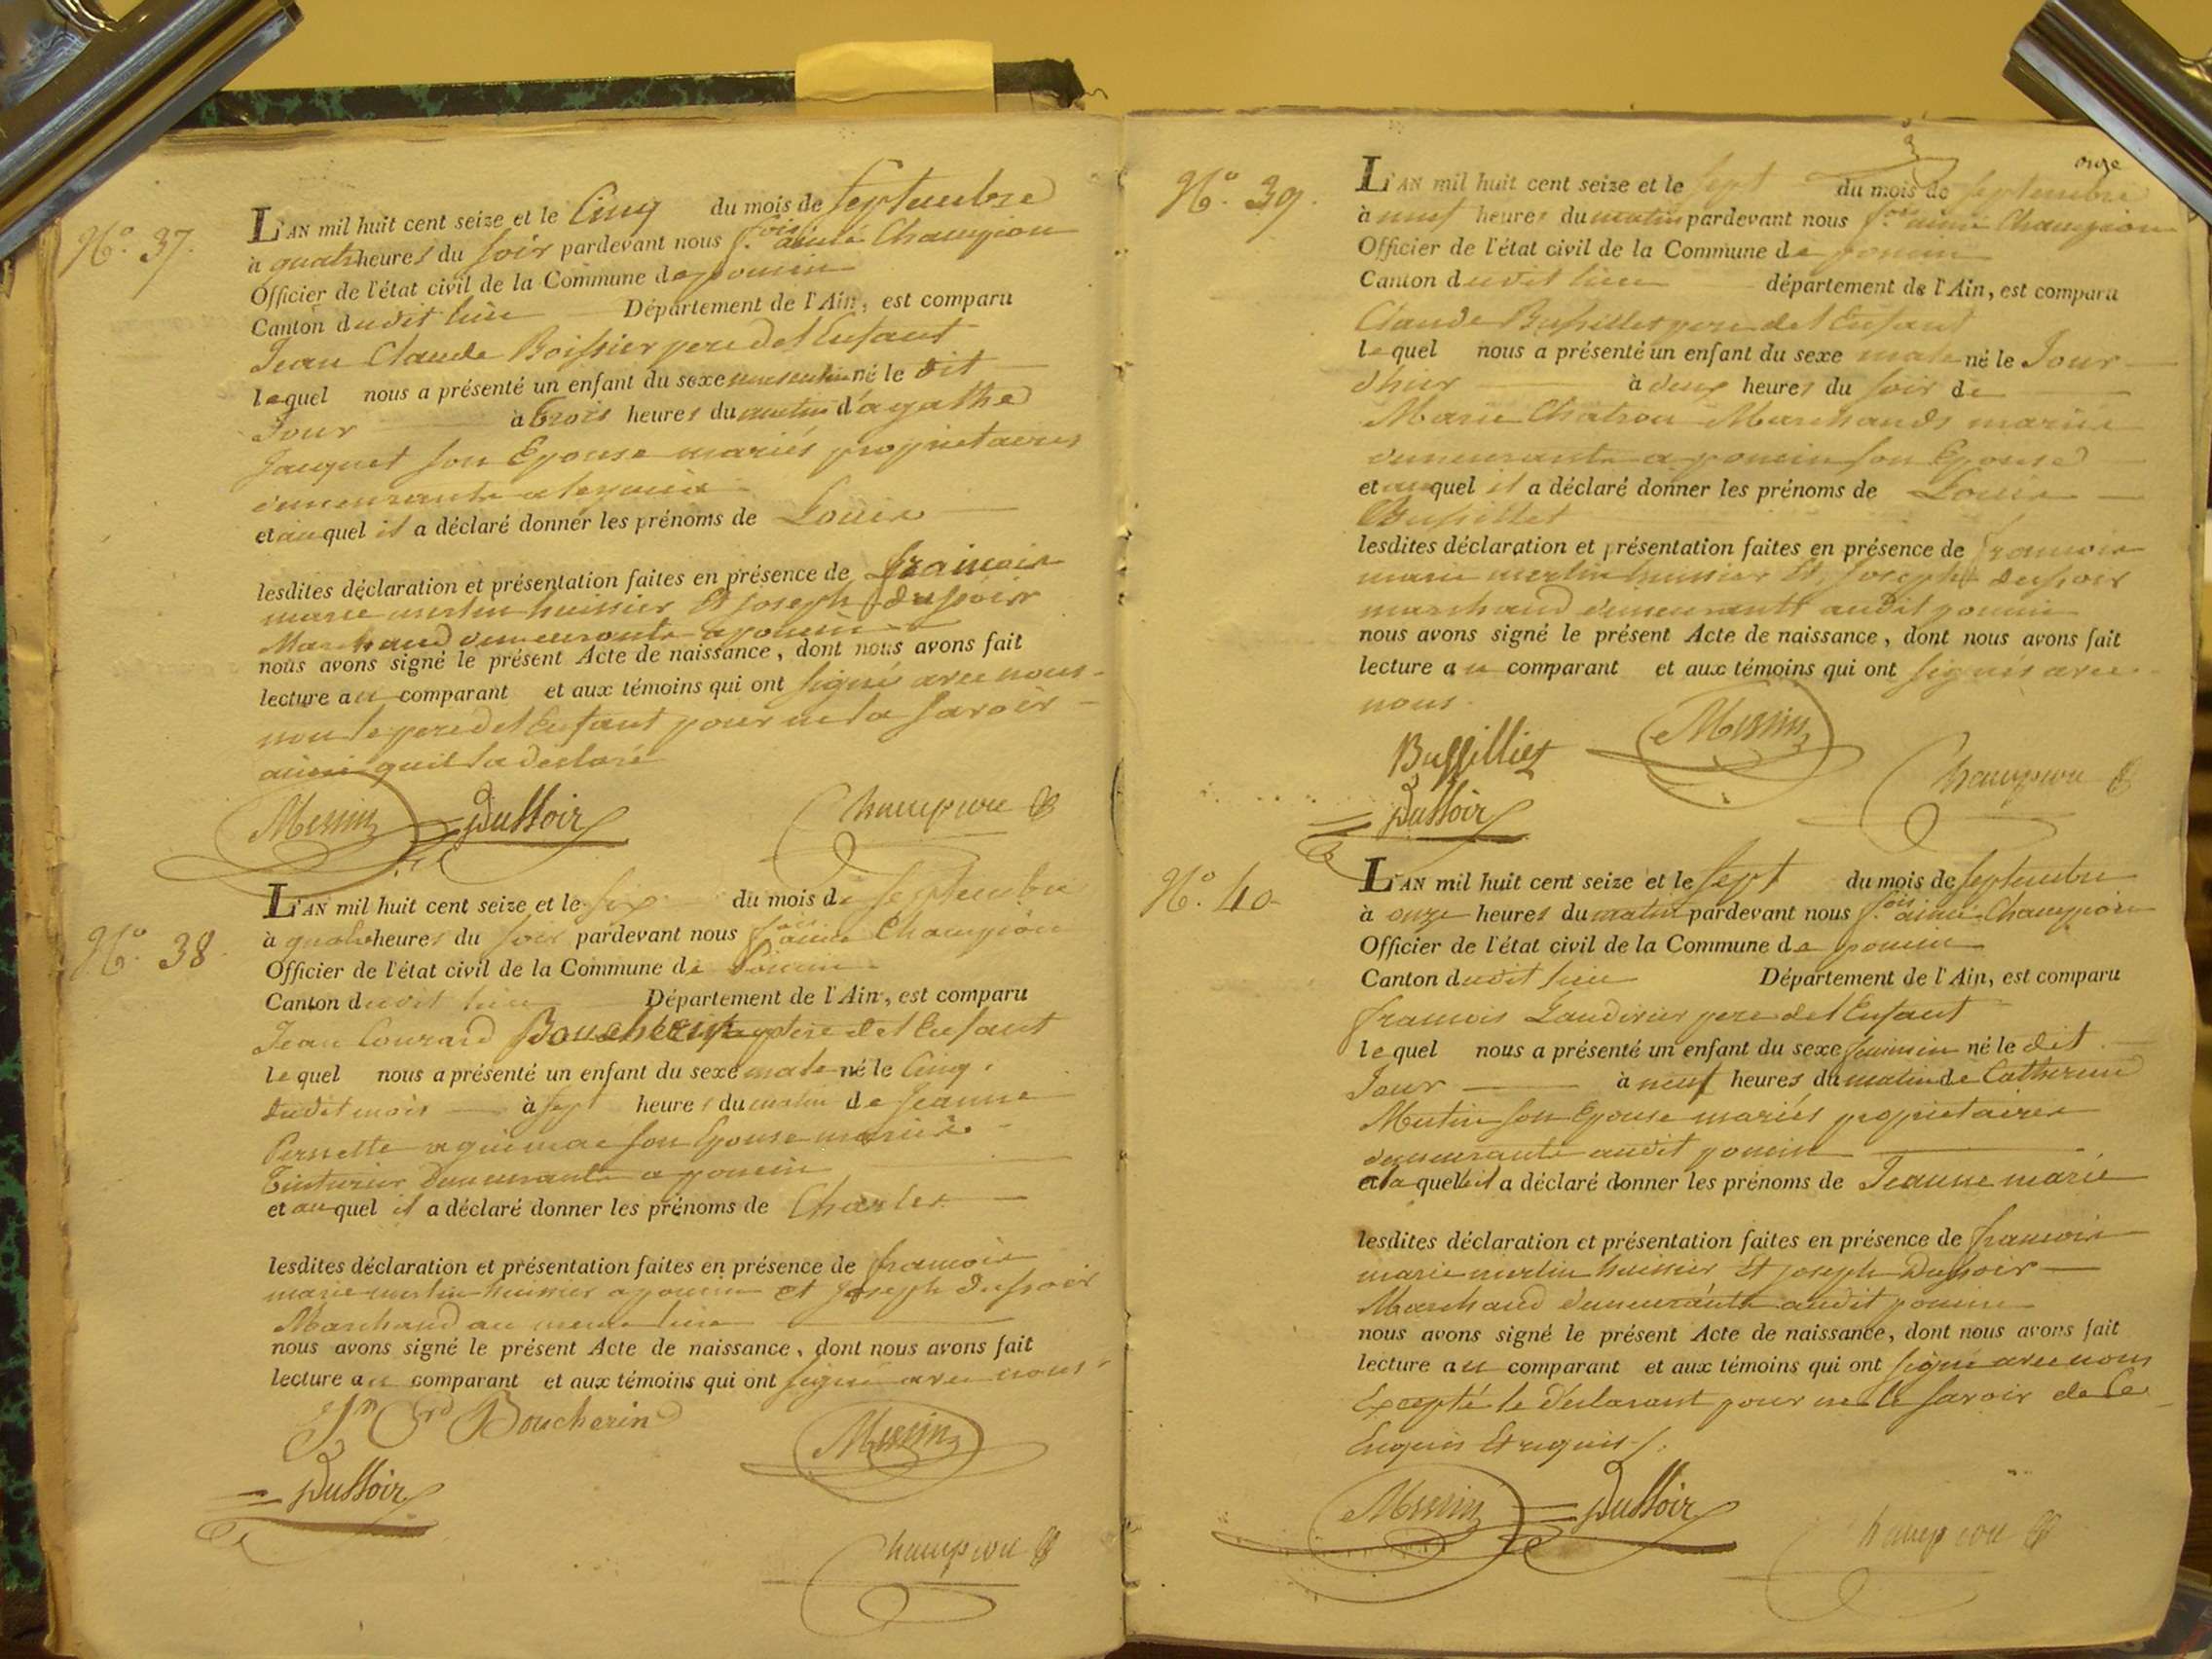 N.º 37.
L'AN mil huit cent seize et le Cinq du mois de septembre
à quatre heures du soir pardevant nous f.ois aimé Champion
Officier de l'état civil de la Commune de poncin
Canton dudit lieu Département de l'Ain, est comparu
Jean Claude Boissier pere del Enfant
lequel nous a présenté un enfant du sexe masculin né le dit
Jour à trois heures du matin d'agathe
Jacquet son Epouse mariés proprietaires
demeurants a
et auquel il a déclaré donner les prénoms de Louis
lesdites déclaration et présentation faites en présence de francois
marie merlin huissier Et joseph dussoir
Marchand demeurants a poncin
nous avons signé le présent Acte de naissance, dont nous avons fait
lecture au comparant et aux témoins qui ont signé avec nous
non le pere del Enfant pour ne la savoir
ainsi quil la déclaré
Dussoir Champion
N.º 38.
L'AN mil huit cent seize et le six du mois de septembre
à quatre heures du soir pardevant nous f.ois aimé Champion
Officier de l'état civil de la Commune de Poncin
Canton dudit lieu Département de l'Ain, est comparu
Jean Conrard Boucherin pere del Enfant
lequel nous a présenté un enfant du sexe male né le Cinq
dudit mois à sept heures du matin de Jeanne
Pernette son Epouse mariés
Tinturier demeurants a poncin
et auquel il a déclaré donner les prénoms de Charles
lesdites déclaration et présentation faites en présence de francois
marie merlin huissier a poncin et joseph dussoir
Marchand au meme lieu
nous avons signé le présent Acte de naissance, dont nous avons fait
lecture au comparant et aux témoins qui ont signé avec nous
Jn Crd Boucherin
Dussoir
Champion
onze
N.º 39.
L'AN mil huit cent seize et le sept du mois de septembre
à neuf heures du matin pardevant nous f.ois aimé Champion
Officier de l'état civil de la Commune de poncin
Canton dudit lieu département de l'Ain, est comparu
Claude Bussillet pere del Enfant
lequel nous a présenté un enfant du sexe male né le Jour
dhier à deux heures du soir de
Marie Chatron Marchands mariés
demeurants a poncin son Epouse
et auquel il a déclaré donner les prénoms de Louis
Bussillet
lesdites déclaration et présentation faites en présence de francois
marie merlin huissier Et joseph dussoir
marchand demeurants audit poncin
nous avons signé le présent Acte de naissance, dont nous avons fait
lecture au comparant et aux témoins qui ont signés avec
nous.
Bussilliet
Champion
Dussoir
N.º 40.
L'AN mil huit cent seize et le sept du mois de septembre
à onze heures du matin pardevant nous f.ois aimé Champion
Officier de l'état civil de la Commune de poncin
Canton dudit lieu Département de l'Ain, est comparu
francois pere del Enfant
lequel nous a présenté un enfant du sexe feminin né le dit
Jour à neuf heures du matin de Catherine
Mutin son Epouse mariés proprietaires
demeurants audit poncin
et a laquelle il a déclaré donner les prénoms de Jeanne marie
lesdites déclaration et présentation faites en présence de francois
marie merlin huissier Et joseph Dussoir
Marchand demeurants audit poncin
nous avons signé le présent Acte de naissance, dont nous avons fait
lecture au comparant et aux témoins qui ont signé avec nous
Excepté le déclarant pour ne le savoir de ce
Enquis Et requis
Dussoir Champion